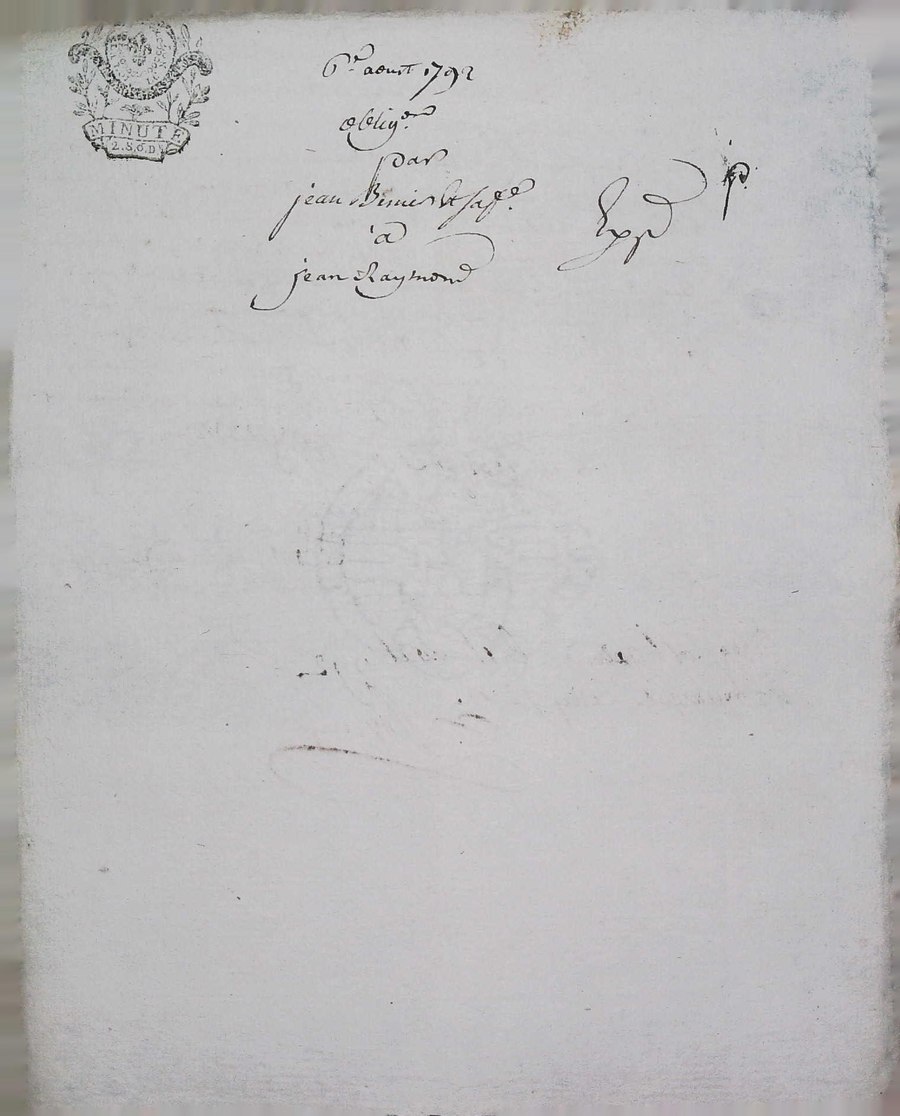 MINUTE
2.S.6.D
6e aoust 1792
oblig.on
par
jean et sa fe.
a
jean Raymond
Exp.d
p.